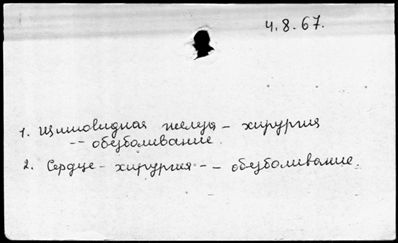 4.8.67.
1. Щитовидная железа – хирургия
-- обезболивание.
2. Сердце – хирургия -- обезболивание.